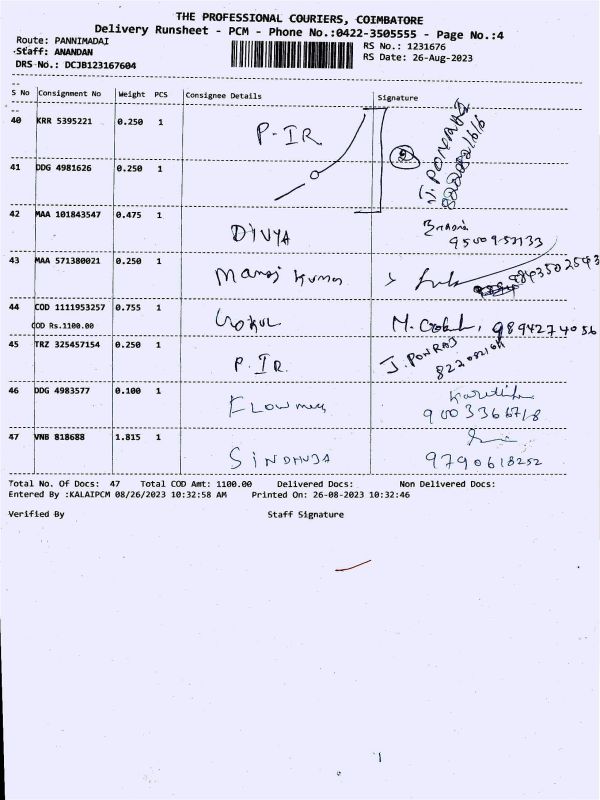 THE PROFESSIONAL COURIERS, COIMBATORE
Delivery Runsheet - PCM - Phone No.:0422-3505555 - Page No.:4
Route: PANNIMADAI
Staff: ANANDAN
DRS No.: DCJB123167604
RS No.: 1231676
RS Date: 26-Aug-2023
S No Consignment No Weight PCS Consignee Details Signature
40 KRR 5395221 0.250 1 P-IR
J. PONRAJ
41 DDG 4981626 0.250 1
42 MAA 101843547 0.475 1 DIVYA
43 MAA 571380021 0.250 1 Manoj Kumar 9843502543
44 COD 1111953257 0.755 1 Gokul M. Gokul, 9894274056
COD Rs.1100.00
45 TRZ 325457154 0.250 1 P.IR. J. PONRAJ
46 DDG 4983577 0.100 1
47 VNB 818688 1.815 1 SINDHUJA 9790618252
Total No. Of Docs: 47 Total COD Amt: 1100.00 Delivered Docs: Non Delivered Docs:
Entered By :KALAIPCM 08/26/2023 10:32:58 AM Printed On: 26-08-2023 10:32:46
Verified By Staff Signature